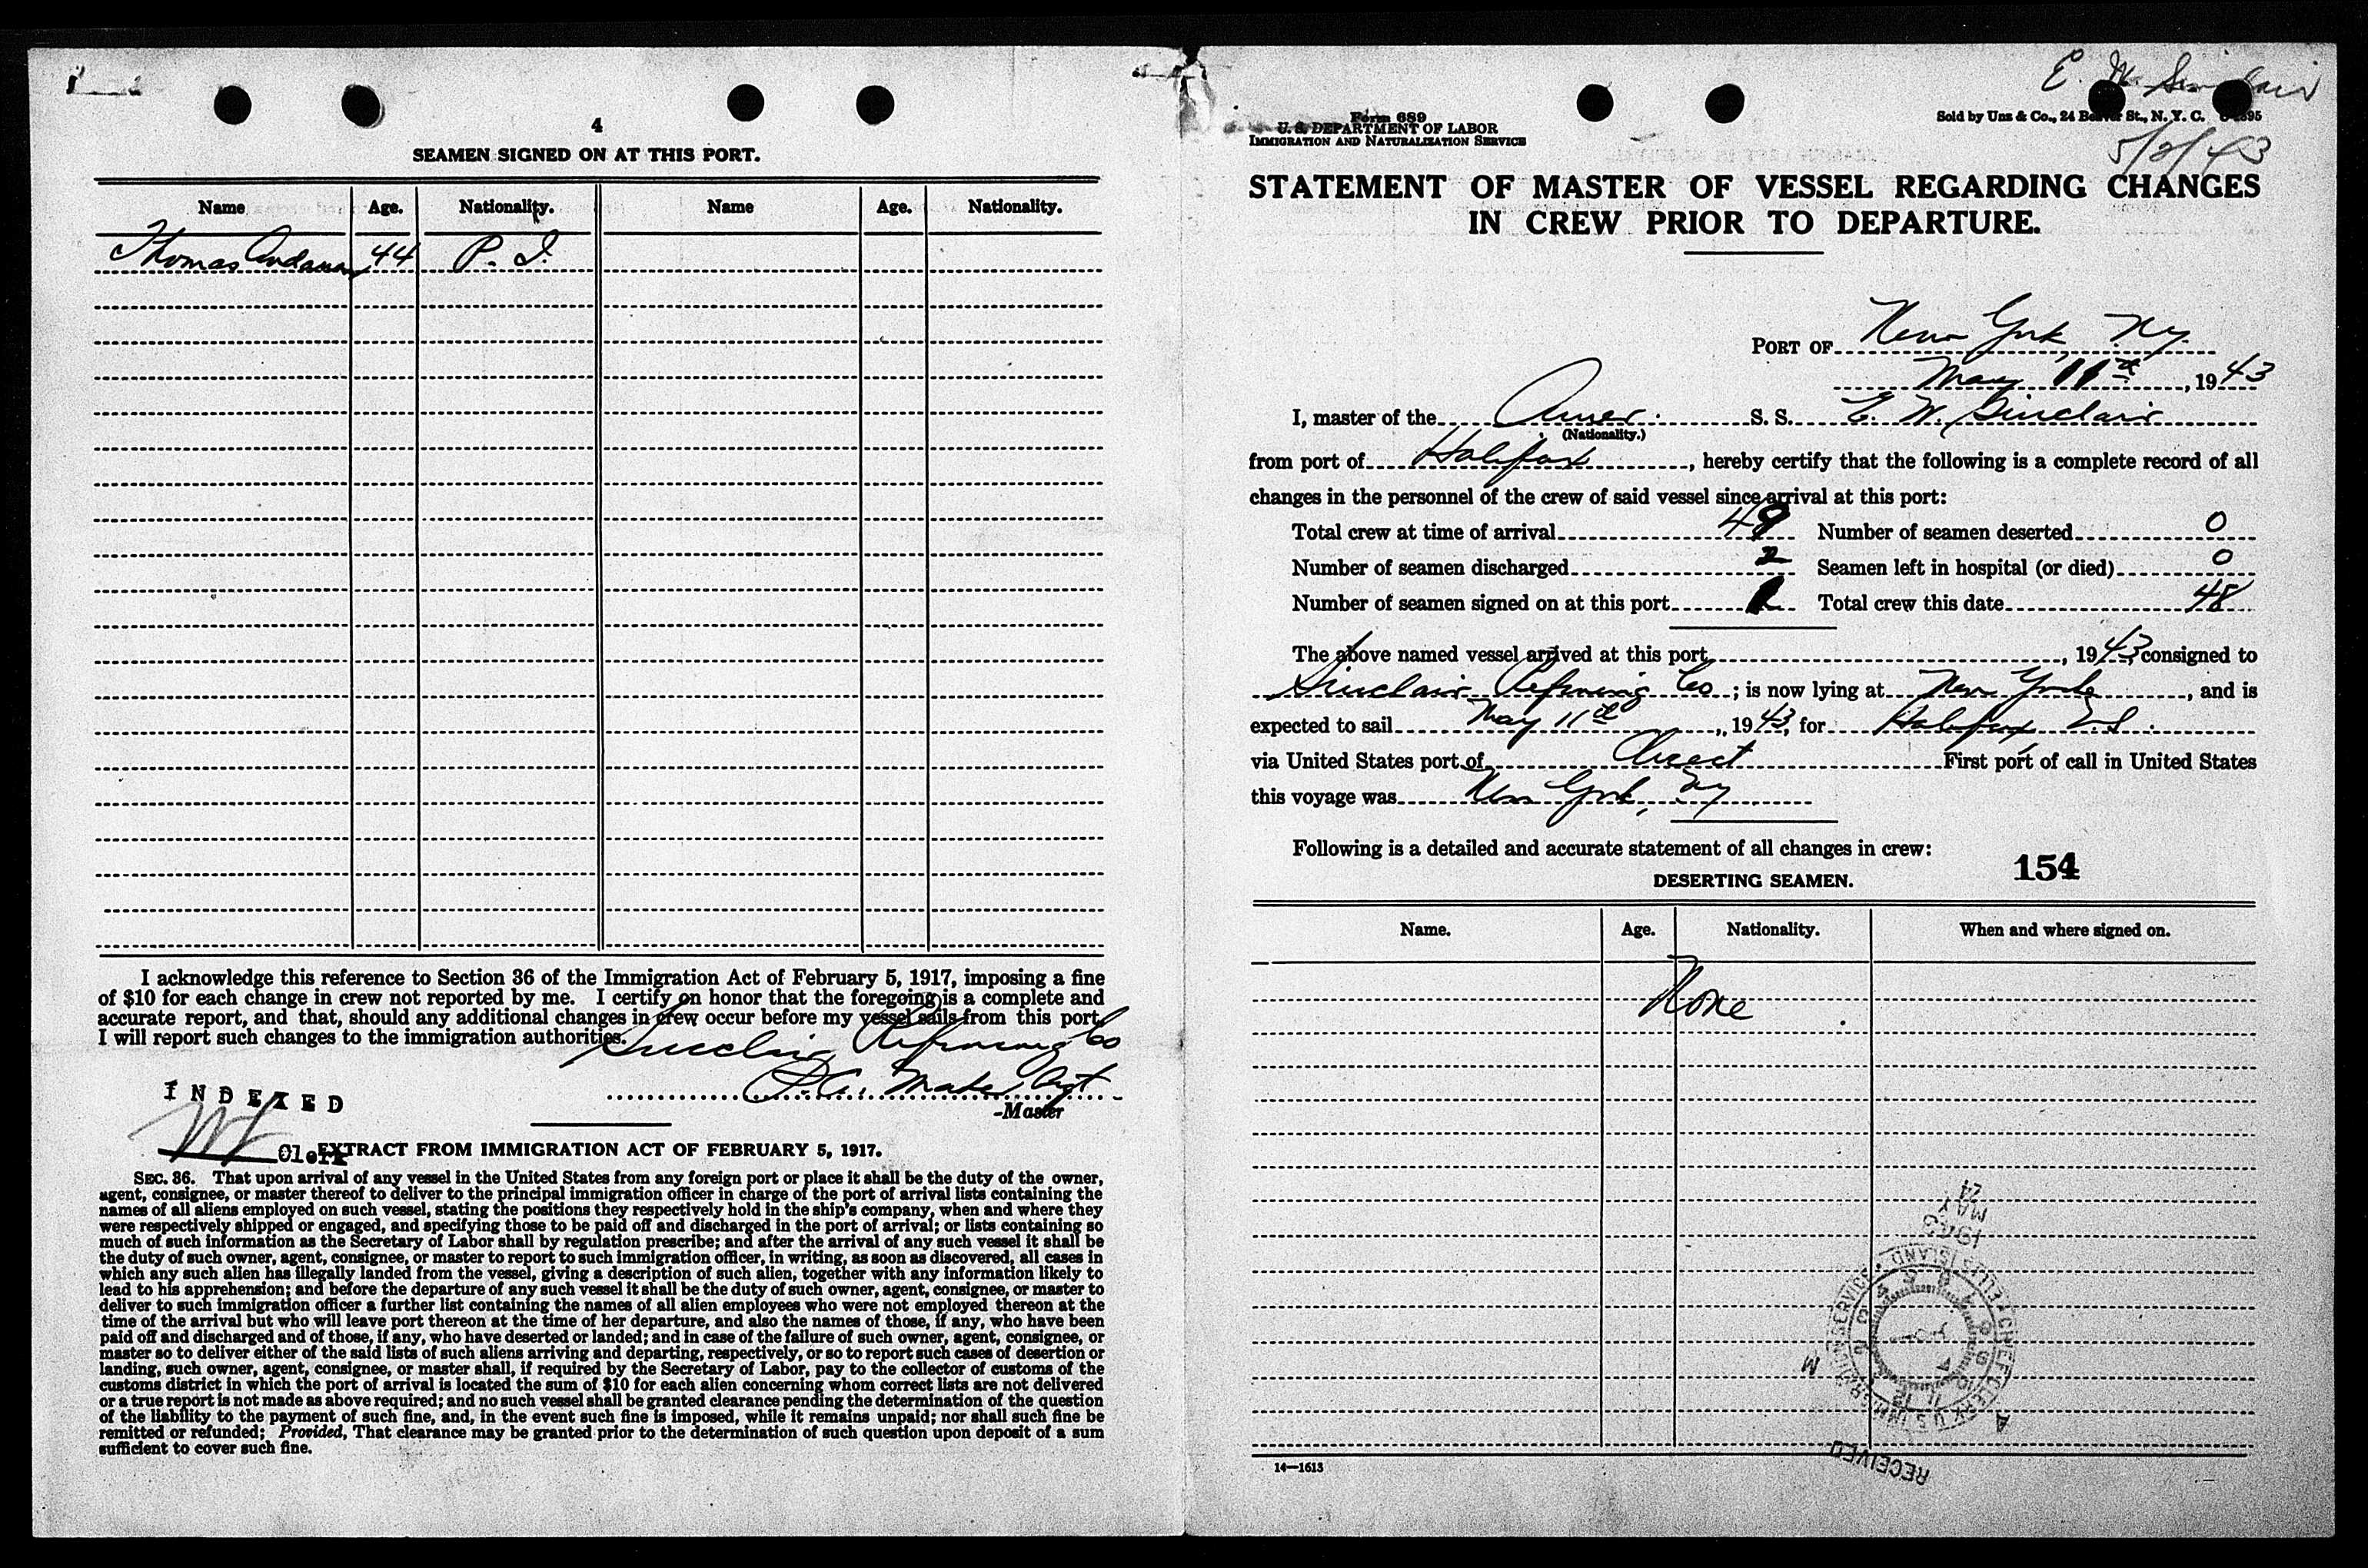 4
SEAMEN SIGNED ON AT THIS PORT.
Name Age. Nationality. Name Age. Nationality.
Thomas 44 P. I.
I acknowledge this reference to Section 36 of the Immigration Act of February 5, 1917, imposing a fine
of $10 for each change in crew not reported by me. I certify on honor that the foregoing is a complete and
accurate report, and that, should any additional changes in crew occur before my vessel sails from this port,
I will report such changes to the immigration authorities.
Sinclair Refining Co
Agt
-Master
INDEXED
Clerk
EXTRACT FROM IMMIGRATION ACT OF FEBRUARY 5, 1917.
SEC. 36. That upon arrival of any vessel in the United States from any foreign port or place it shall be the duty of the owner,
agent, consignee, or master thereof to deliver to the principal immigration officer in charge of the port of arrival lists containing the
names of all aliens employed on such vessel, stating the positions they respectively hold in the ship's company, when and where they
were respectively shipped or engaged, and specifying those to be paid off and discharged in the port of arrival; or lists containing so
much of such information as the Secretary of Labor shall by regulation prescribe; and after the arrival of any such vessel it shall be
the duty of such owner, agent, consignee, or master to report to such immigration officer, in writing, as soon as discovered, all cases in
which any such alien has illegally landed from the vessel, giving a description of such alien, together with any information likely to
lead to his apprehension; and before the departure of any such vessel it shall be the duty of such owner, agent, consignee, or master to
deliver to such immigration officer a further list containing the names of all alien employees who were not employed thereon at the
time of the arrival but who will leave port thereon at the time of her departure, and also the names of those, if any, who have been
paid off and discharged and of those, if any, who have deserted or landed; and in case of the failure of such owner, agent, consignee, or
master so to deliver either of the said lists of such aliens arriving and departing, respectively, or so to report such cases of desertion or
landing, such owner, agent, consignee, or master shall, if required by the Secretary of Labor, pay to the collector of customs of the
customs district in which the port of arrival is located the sum of $10 for each alien concerning whom correct lists are not delivered
or a true report is not made as above required; and no such vessel shall be granted clearance pending the determination of the question
of the liability to the payment of such fine, and, in the event such fine is imposed, while it remains unpaid; nor shall such fine be
remitted or refunded; Provided, That clearance may be granted prior to the determination of such question upon deposit of a sum
sufficient to cover such fine.
E. W. Sinclair
Form 689
U. S. DEPARTMENT OF LABOR
IMMIGRATION AND NATURALIZATION SERVICE
Sold by Unz & Co., 24 Beaver St., N. Y. C.
5/8/43
STATEMENT OF MASTER OF VESSEL REGARDING CHANGES
IN CREW PRIOR TO DEPARTURE.
PORT OF New York NY.
May 11th, 1943
I, master of the Amer. S. S. E. W. Sinclair
(Nationality.)
from port of Halifax, hereby certify that the following is a complete record of all
changes in the personnel of the crew of said vessel since arrival at this port:
Total crew at time of arrival 49 Number of seamen deserted 0
Number of seamen discharged 2 Seamen left in hospital (or died) 0
Number of seamen signed on at this port 1 Total crew this date 48
The above named vessel arrived at this port, 1943, consigned to
Sinclair Refining Co; is now lying at New York, and is
expected to sail May 11th, 1943, for Halifax, N.S.
via United States port of Direct First port of call in United States
this voyage was New York, NY
Following is a detailed and accurate statement of all changes in crew:
154
DESERTING SEAMEN.
Name. Age. Nationality. When and where signed on.
None
14—1613
RECEIVED
CHIEF CLERK U S IMMIGRATION SERVICE • ELLIS ISLAND
1943
MAY 24